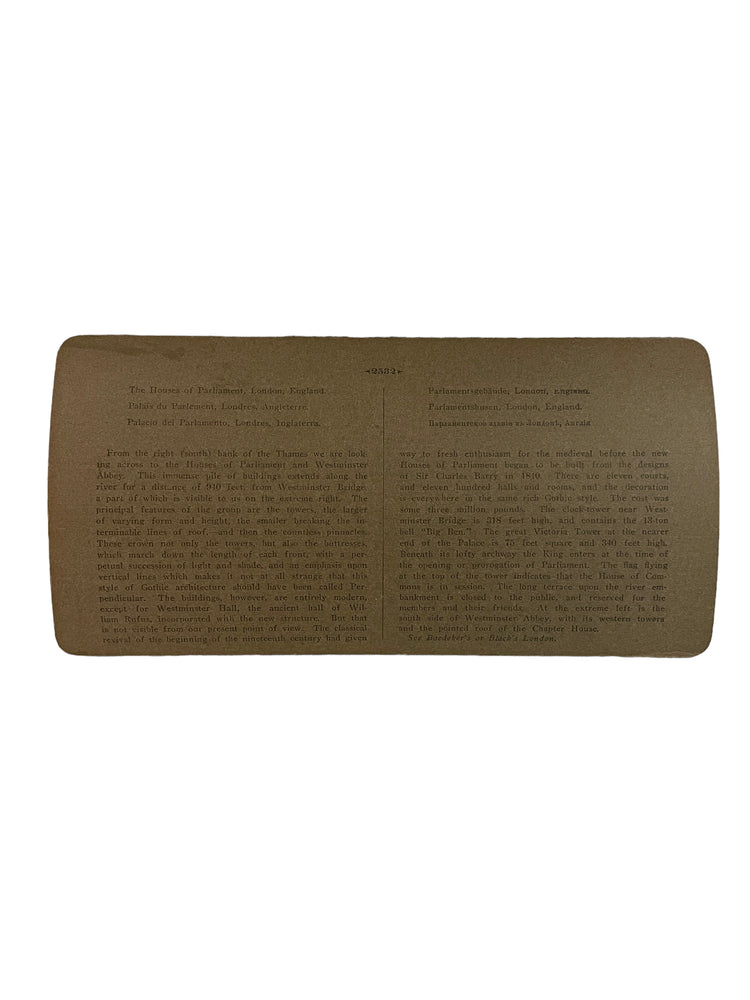 2532
The Houses of Parliament, London, England.
Palais du Parlement, Londres, Angleterre.
Palacio del Parlamento, Londres, Inglaterra.
From the right (south) bank of the Thames we are look-
ing across to the Houses of Parliament and Westminster
Abbey. This immense pile of buildings extends along the
river for a distance of 940 feet, from Westminster Bridge,
a part of which is visible to us on the extreme right. The
principal features of the group are the towers, the larger
of varying form and height, the smaller breaking the in-
terminable lines of roof,—and then the countless pinnacles.
These crown not only the towers, but also the buttresses,
which march down the length of each front, with a per-
petual succession of light and shade, and an emphasis upon
vertical lines which makes it not at all strange that this
style of Gothic architecture should have been called Per-
pendicular. The buildings, however, are entirely modern,
except for Westminster Hall, the ancient hall of Wil-
liam Rufus, incorporated with the new structure. But that
is not visible from our present point of view. The classical
revival of the beginning of the nineteenth century had given
Parlamentsgebäude, London, England.
Parlamentshusen, London, England.
Парламентское зданіе въ Лондонѣ, Англія
way to fresh enthusiasm for the medieval before the new
Houses of Parliament began to be built from the designs
of Sir Charles Barry in 1840. There are eleven courts,
and eleven hundred halls and rooms, and the decoration
is everywhere in the same rich Gothic style. The cost was
some three million pounds. The clock-tower near West-
minster Bridge is 318 feet high, and contains the 13-ton
bell "Big Ben." The great Victoria Tower at the nearer
end of the Palace is 75 feet square and 340 feet high.
Beneath its lofty archway the King enters at the time of
the opening or prorogation of Parliament. The flag flying
at the top of the tower indicates that the House of Com-
mons is in session. The long terrace upon the river em-
bankment is closed to the public, and reserved for the
members and their friends. At the extreme left is the
south side of Westminster Abbey, with its western towers
and the pointed roof of the Chapter House.
See Baedeker's or Black's London.